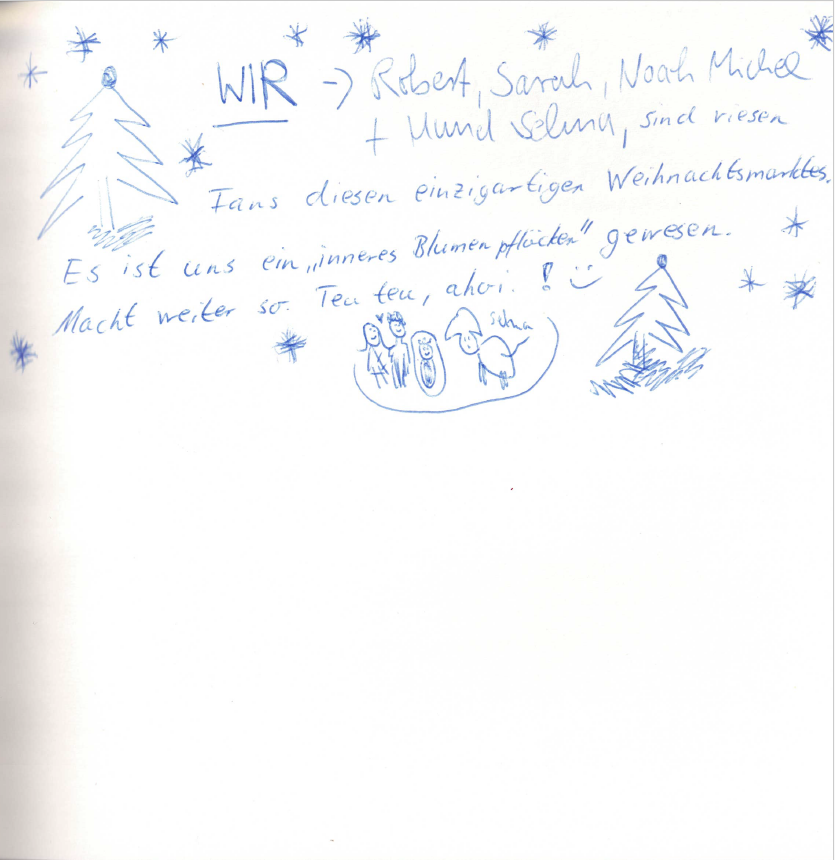 WIR -> Robert, Sarah, Noah Michel
+ Hund Selma, sind riesen
Fans diesen einzigartigen Weihnachtsmarktes.
Es ist uns ein „inneres Blumen pflücken" gewesen.
Macht weiter so. Teu teu, ahoi. ! :)
Selma